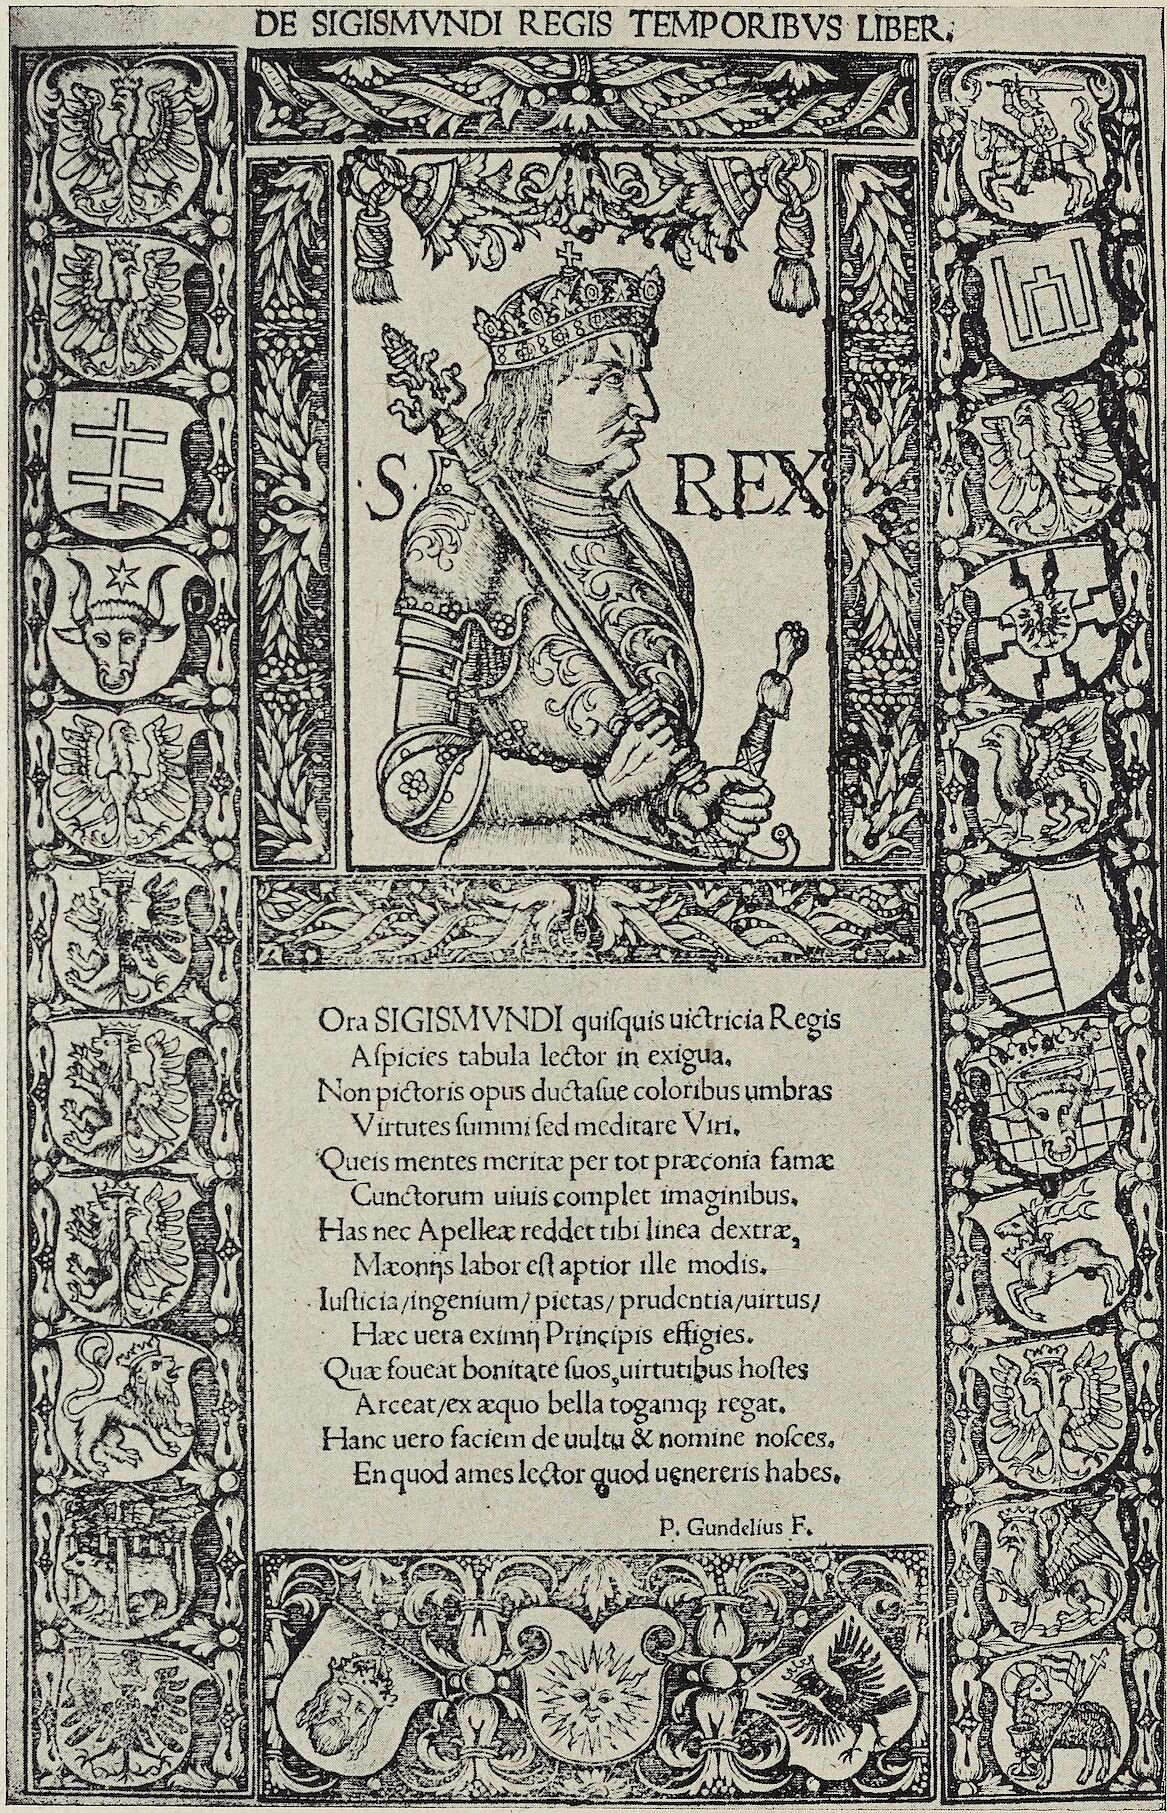 DE SIGISMVNDI REGIS TEMPORIBVS LIBER.
·S· REX
Ora SIGISMVNDI quiſquis uictricia Regis
Aſpicies tabula lector in exigua.
Non pictoris opus ductaſue coloribus umbras
Virtutes ſummi ſed meditare Viri.
Queis mentes meritæ per tot præconia famæ
Cunctorum uiuis complet imaginibus.
Has nec Apelleæ reddet tibi linea dextræ,
Mæonijs labor eſt aptior ille modis.
Iuſticia/ingenium/pietas/prudentia/uirtus/
Hæc uera eximij Principis effigies.
Quæ foueat bonitate ſuos,uirtutibus hoſtes
Arceat/ex æquo bella togamq; regat.
Hanc uero faciem de uultu & nomine noſces.
En quod ames lector quod uenereris habes.
P. Gundelius F.